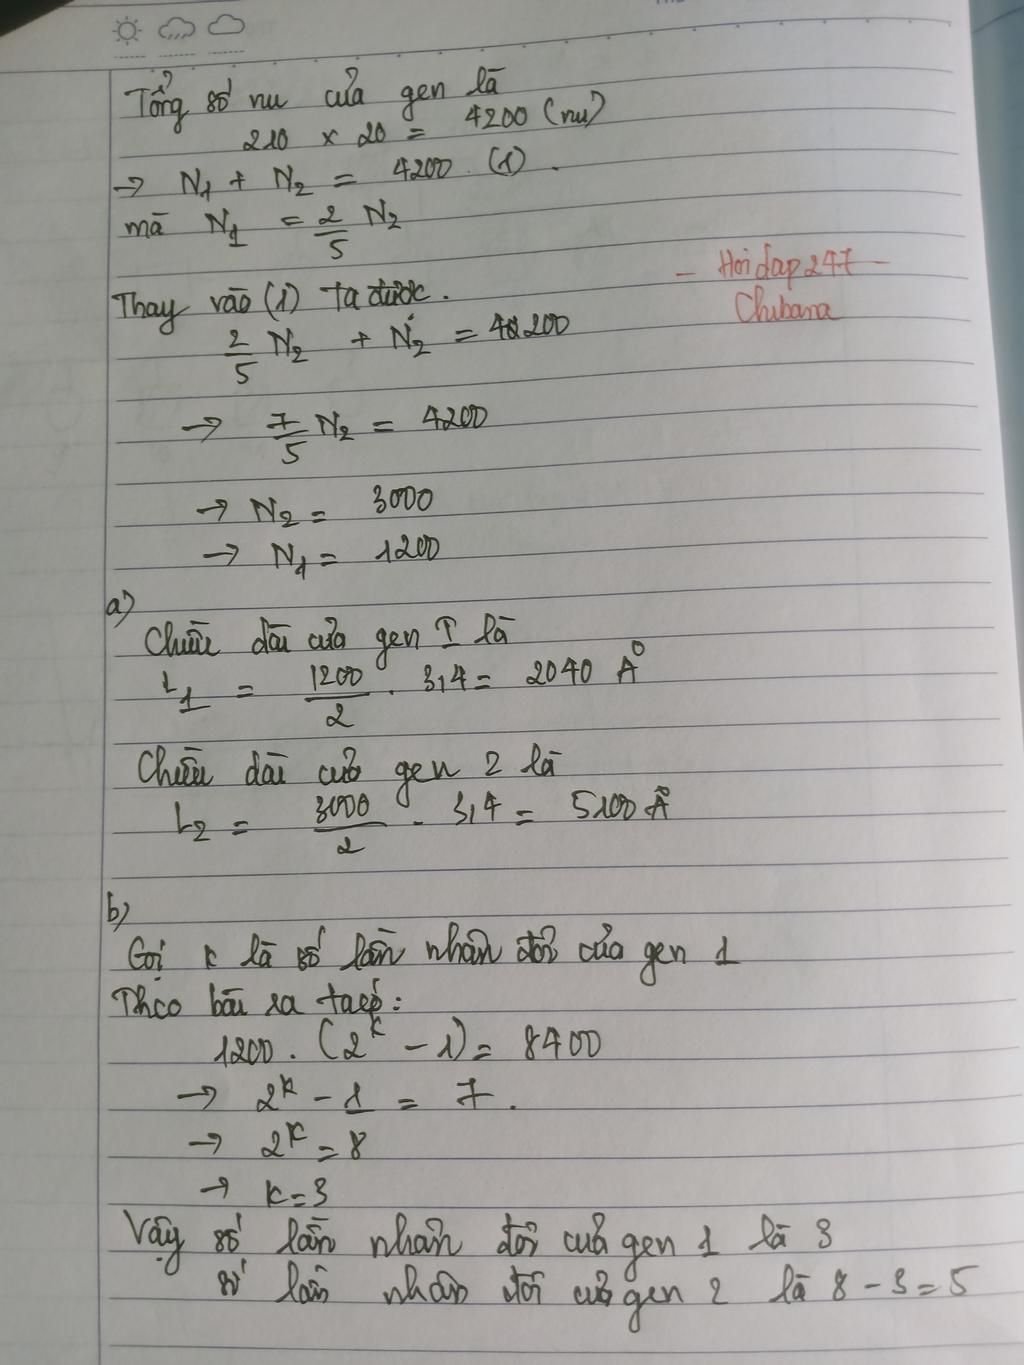 Tổng số nu của gen là
210 x 20 = 4200 (nu)
→ N1 + N2 = 4200 (1).
mà N1 = 2/5 N2
- Hoidap247 -
Chibana
Thay vào (1) ta được.
2/5 N2 + N2 = 4200
→ 7/5 N2 = 4200
→ N2 = 3000
→ N1 = 1200
a)
Chiều dài của gen I là
L1 = 1200/2 . 3,4 = 2040 Å
Chiều dài của gen 2 là
L2 = 3000/2 . 3,4 = 5100 Å
b)
Gọi k là số lần nhân đôi của gen 1
Theo bài ra ta có:
1200 . (2^k - 1) = 8400
→ 2^k - 1 = 7.
→ 2^k = 8
→ k = 3
Vậy số lần nhân đôi của gen 1 là 3
số lần nhân đôi của gen 2 là 8 - 3 = 5